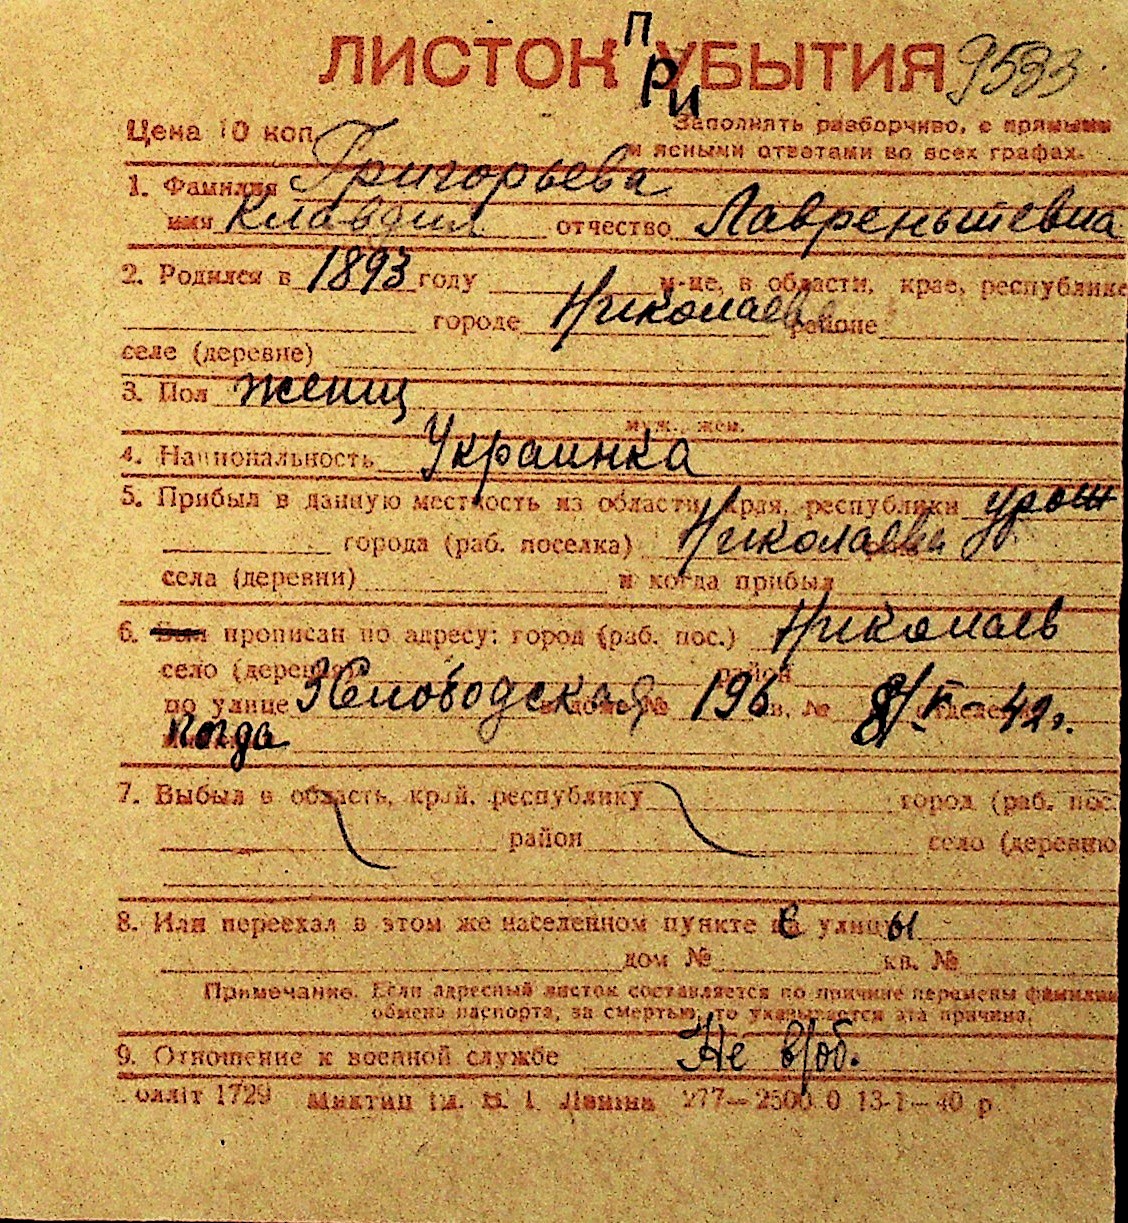 ЛИСТОК ПРИУБЫТИЯ 9583
Цена 10 коп. Заполнять разборчиво, с прямыми
и ясными ответами во всех графах.
1. Фамилия Григорьева
имя Клавдия отчество Лаврентьевна
2. Родился в 1893 году м-це, в области, крае, республике
городе Николаев районе
селе (деревне)
3. Пол женщ
муж., жен.
4. Национальность Украинка
5. Прибыл в данную местность из области, края, республики урож
города (раб. поселка) Николаева
села (деревни) и когда прибыл
6. прописан по адресу: город (раб. пос.) Николаев
село (деревня) район
по улице Слободская дом № 196 кв. № 42г.
Когда
7. Выбыл в область, край, республику город (раб. пос.
район село (деревню
8. Или переехал в этом же населенном пункте с улицы
дом № кв. №
Примечание. Если адресный листок составляется по причине перемены фамилии
обмена паспорта, за смертью, то указывается эта причина.
9. Отношение к военной службе Не в/об.
оллiт 1729 iм. В. I. Ленiна 277—2500.0 13-1—40 р